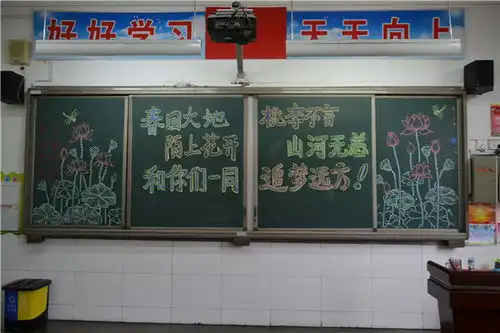 好好学习
天天向上
春回大地
陌上花开
和你们一同
桃李不言
山河无恙
追梦远方!